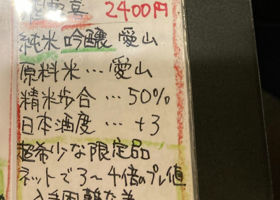 2400円
純米吟醸 愛山
原料米…愛山
精米歩合…50%
日本酒度…+3
超希少な限定品
ネットで3〜4倍のプレ値
入手困難な